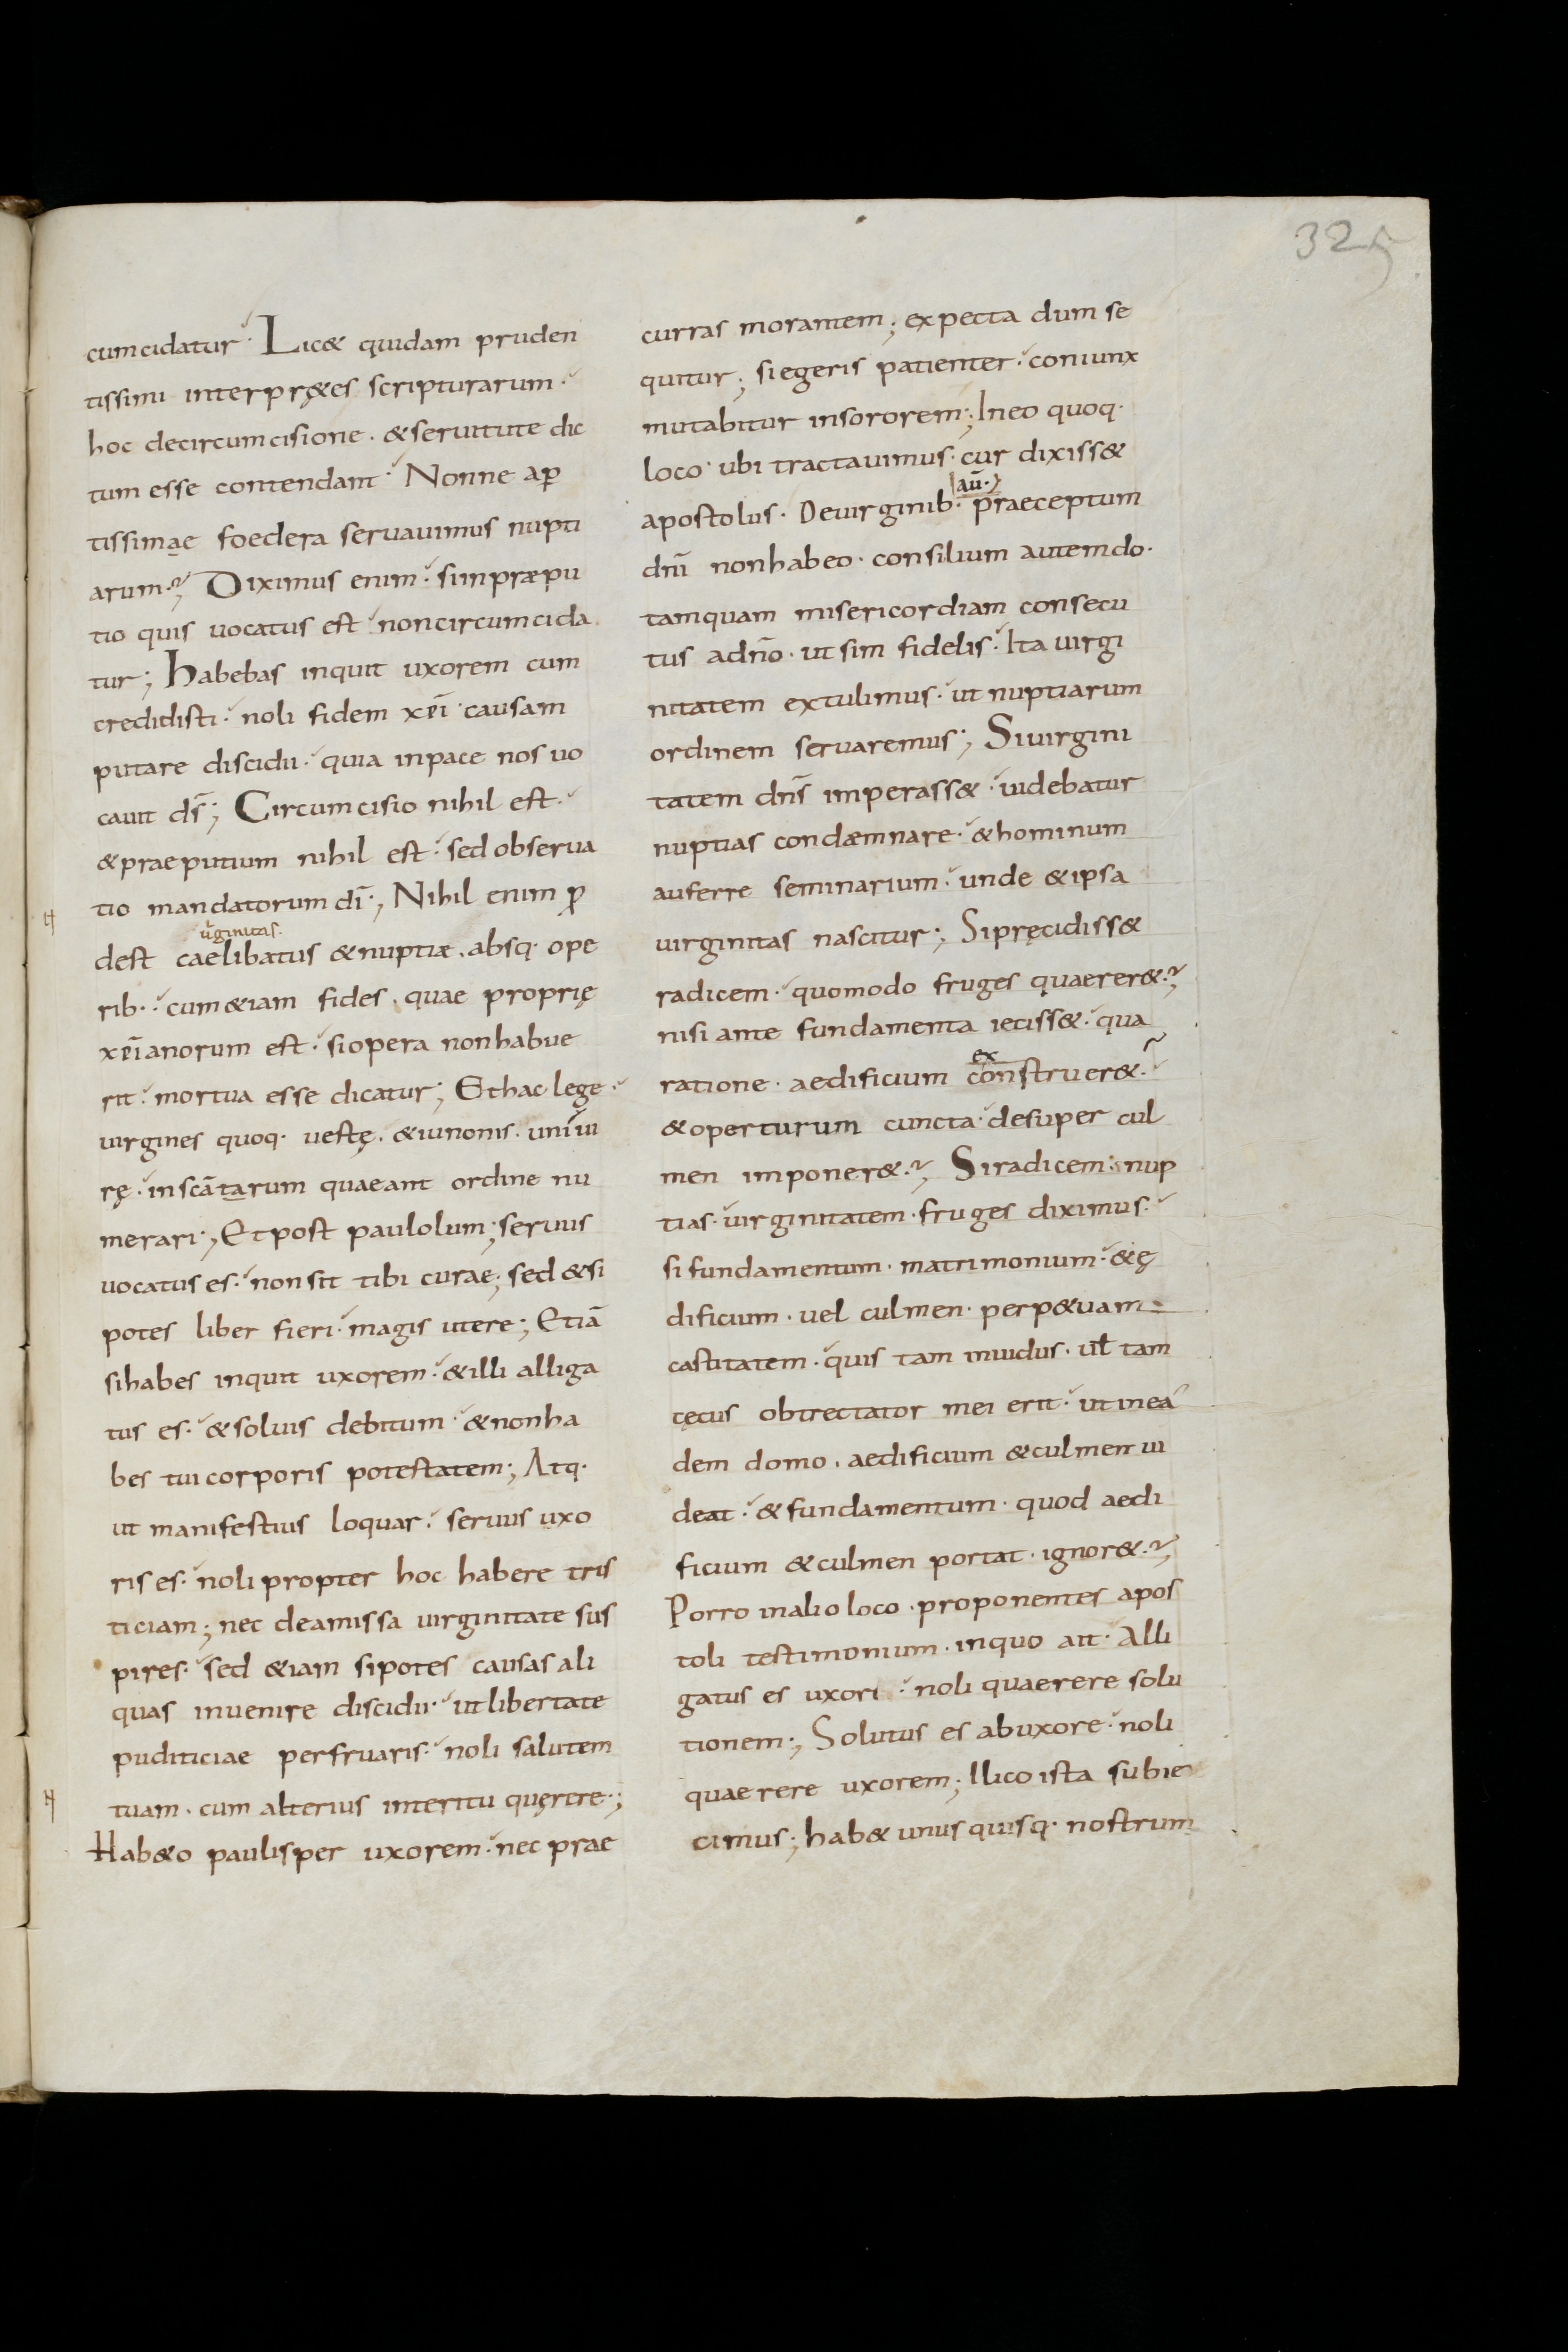 325
cumcidatur· Lic& quidam pruden
tissimi interpr&ęes scripturarum·
hoc decircumcisione· &seruitute dic
tum esse contendant· Nonne ap̱
tissimae foedera seruauimus nupti
arum·? Diximus enim· sunpraepu
tio quis uocatus est· noncircumcida
tur; habebas inquit uxorem cum
credidisti· noli fidem xp̄i causam
putare discidii· quia inpace nos uo
cauit ds̄; Circumcisio nihil est·
&praeputium nihil est· sed obserua
tio mandatorum dī·, Nihil enim ꝓ
uirginitas·
dest caelibatus &nuptiæ· absq· ope
rib·· cum&iam fides· quae proprię
xp̄ianorum est· siopera nonhabue
rit· mortua esse dicatur; Ethac lege·
uirgines quoq· uestę· &iunonis· uniui
rę· inscārtarum quaeant ordine nu
merari·, Etpost paulolum; seruus
uocatus es· nonsit tibi curae; sed &si
potes liber fieri· magis utere; Etiā
sihabes inquit uxorem· &illi alliga
tus es· &soluis debitum· &nonha
bes tui corporis potestatem; Atq·
ut manifestius loquar· seruus uxo
ris es· noli propter hoc habere tris
ticiam; nec deamissa uirginitate sus
pires· sed &iam sipotes causas ali
quas inuenire discidii· utlibertate
puditiciae perfruaris· noli salutem
tuam· cum alterius interitu quęrere·;
Hab&o paulisper uxorem· nec prae
curras morantem; expecta dum se
quitur; siegeris patienter· coniunx
mutabitur insororem; Ineo quoq·
loco· ubi tractauimus· cur dixiss&
aū·
apostolus· Deuirginib· praeceptum
dn̄i nonhabeo· consilium autemdo·
tamquam misericordiam consecu
tus adn̄o· ut sim fidelis· Ita uirgi
nitatem extulimus· ut nuptiarum
ordinem seruaremus; Siuirgini
tatem dn̄s imperass&· uidebatur
nuptias condæmnare· &hominum
auferre seminarium· unde &ipsa
uirginitas nascitur; Sipręcidiss&
radicem· quomodo fruges quaerer&·?
nisi ante fundamenta ieciss&· qua
ex
ratione· aedificium construer&·
&operturum cuncta· desuper cul
men imponer&·? Siradicem· nup
tias· uirginitatem· fruges diximus·
sifundamentum· matrimonium· &ę
dificium· uel culmen· perp&uam
castitatem· quis tam inuidus· ul̄ tam
cęcus obtrectator mei erit· ut ineā
dem domo· aedificium &culmen ui
deat· &fundamentum· quod aedi
ficium &culmen portat· ignor&·?
Porro inalio loco· proponentes apos
toli testimonium· inquo ait· Alli
gatus es uxori· noli quaerere solu
tionem·, Solutus es abuxore· noli
quaerere uxorem; Ilico ista subie
cimus; hab& unusquisq· nostrum